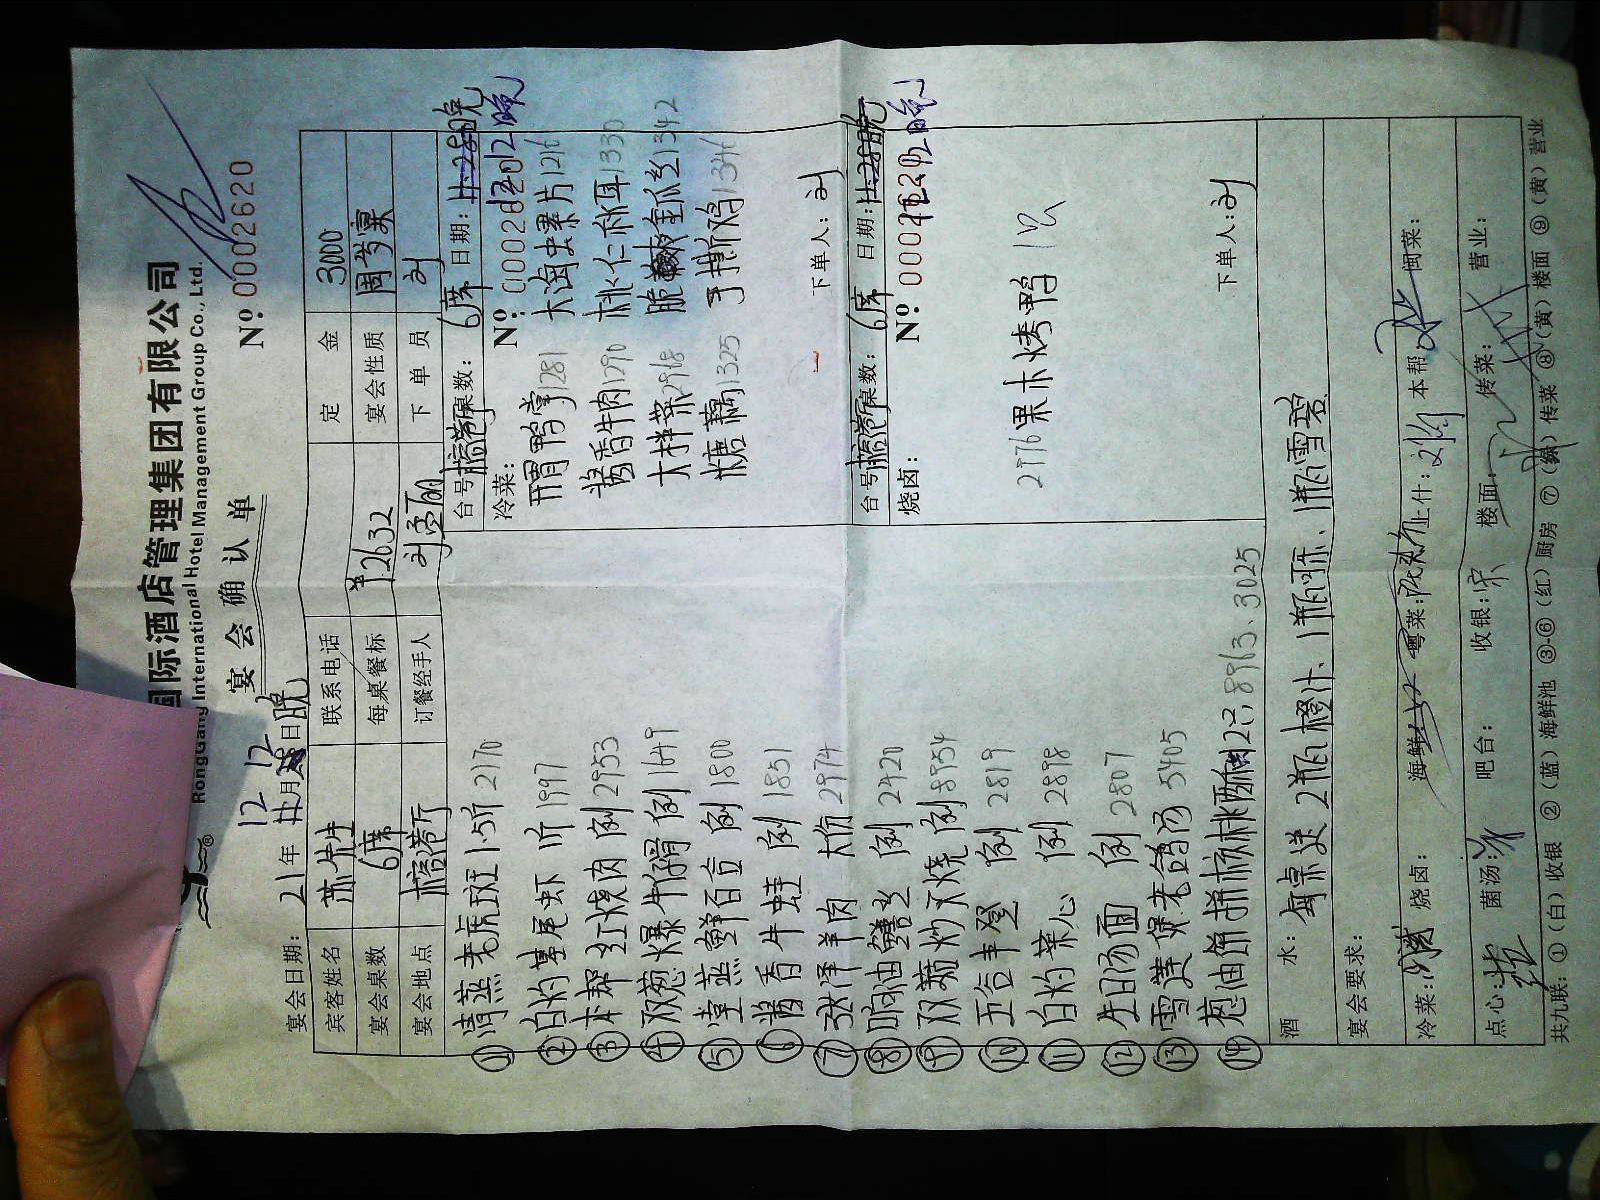 国际酒店管理集团有限公司
RongGang International Hotel Management Group Co., Ltd.
宴会确认单
№:0002620
宴会日期: 21年 12月 12日晚
宾客姓名 苏 联系电话 定金 3000
宴会桌数 6席 每桌餐标 ¥2632 宴会性质 周岁宴
宴会地点 榕港厅 订餐经手人 刘 下单员 刘
① 清蒸老虎斑 1.5斤 2170
② 白灼基尾虾 1斤 1997
③ 本帮红烧肉 例 2953
④ 双葱爆牛仔骨 例 1649
⑤ 堂蒸鲜百合 例 1800
⑥ 酱香牛蛙 例 1851
⑦ 张泽羊肉 大份 2974
⑧ 响油鳝丝 例 2420
⑨ 双菇炒叉烧 例 8954
⑩ 五谷丰登 例 2819
⑪ 白灼菜心 例 2898
⑫ 生日汤面 例 2807
⑬ 雪莲煲老鸽汤 5405
⑭ 葱油饼拼核桃酥 8963、3025
台号: 榕港厅 桌数: 6席 日期: 12.12晚
冷菜:
№:0002620
卤鸭掌 1281 大海螺片 1216
酱香牛肉 1290 桃仁秋耳 1330
大拌菜 2968 脆嫩金瓜丝 1342
糖藕 1325 手撕鸡 1346
下单人: 刘
台号: 榕港厅 桌数: 6席 日期: 12.12晚
烧卤:
№:0002620
2776 果木烤鸭 1只
下单人: 刘
酒水: 每桌送2瓶橙汁、1瓶可乐、1瓶雪碧
宴会要求:
冷菜: 烧卤: 海鲜: 粤菜: 上什: 本帮: 闽菜:
点心: 菌汤: 吧台: 收银: 宋 楼面: 传菜: 营业:
共九联: ①(白)收银 ②(蓝)海鲜池 ③-⑥(红)厨房 ⑦(绿)传菜 ⑧(黄)楼面 ⑨(黄)营业